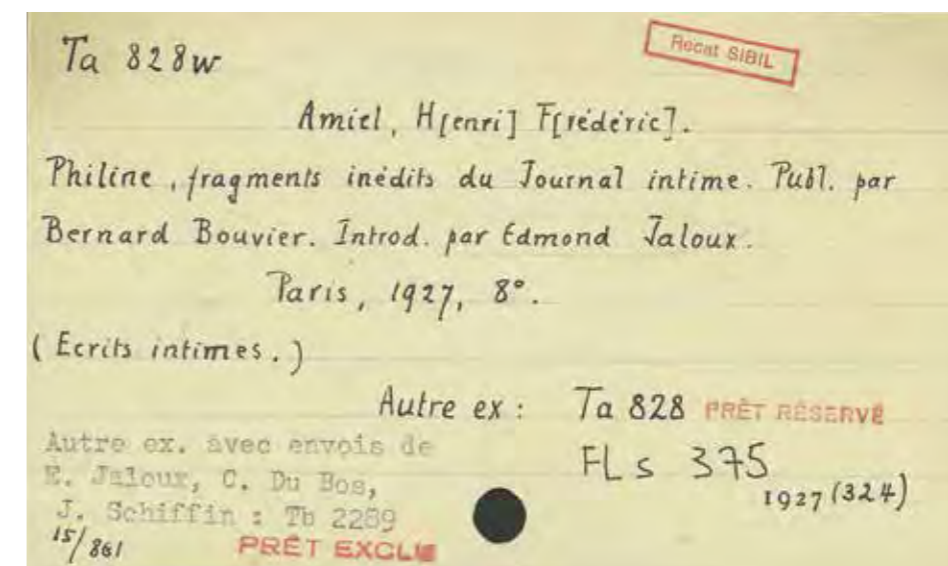 Ta 828w
Recat SIBIL
Amiel, H[enri] F[rédéric].
Philine, fragments inédits du Journal intime. Publ. par
Bernard Bouvier. Introd. par Edmond Jaloux.
Paris, 1927, 8°.
(Ecrits intimes.)
Autre ex : Ta 828 PRÊT RÉSERVÉ
Autre ex. avec envois de
E. Jaloux, C. Du Bos,
J. Schiffin : Tb 2289
FL s 375
1927 (324)
15/861
PRÊT EXCLU